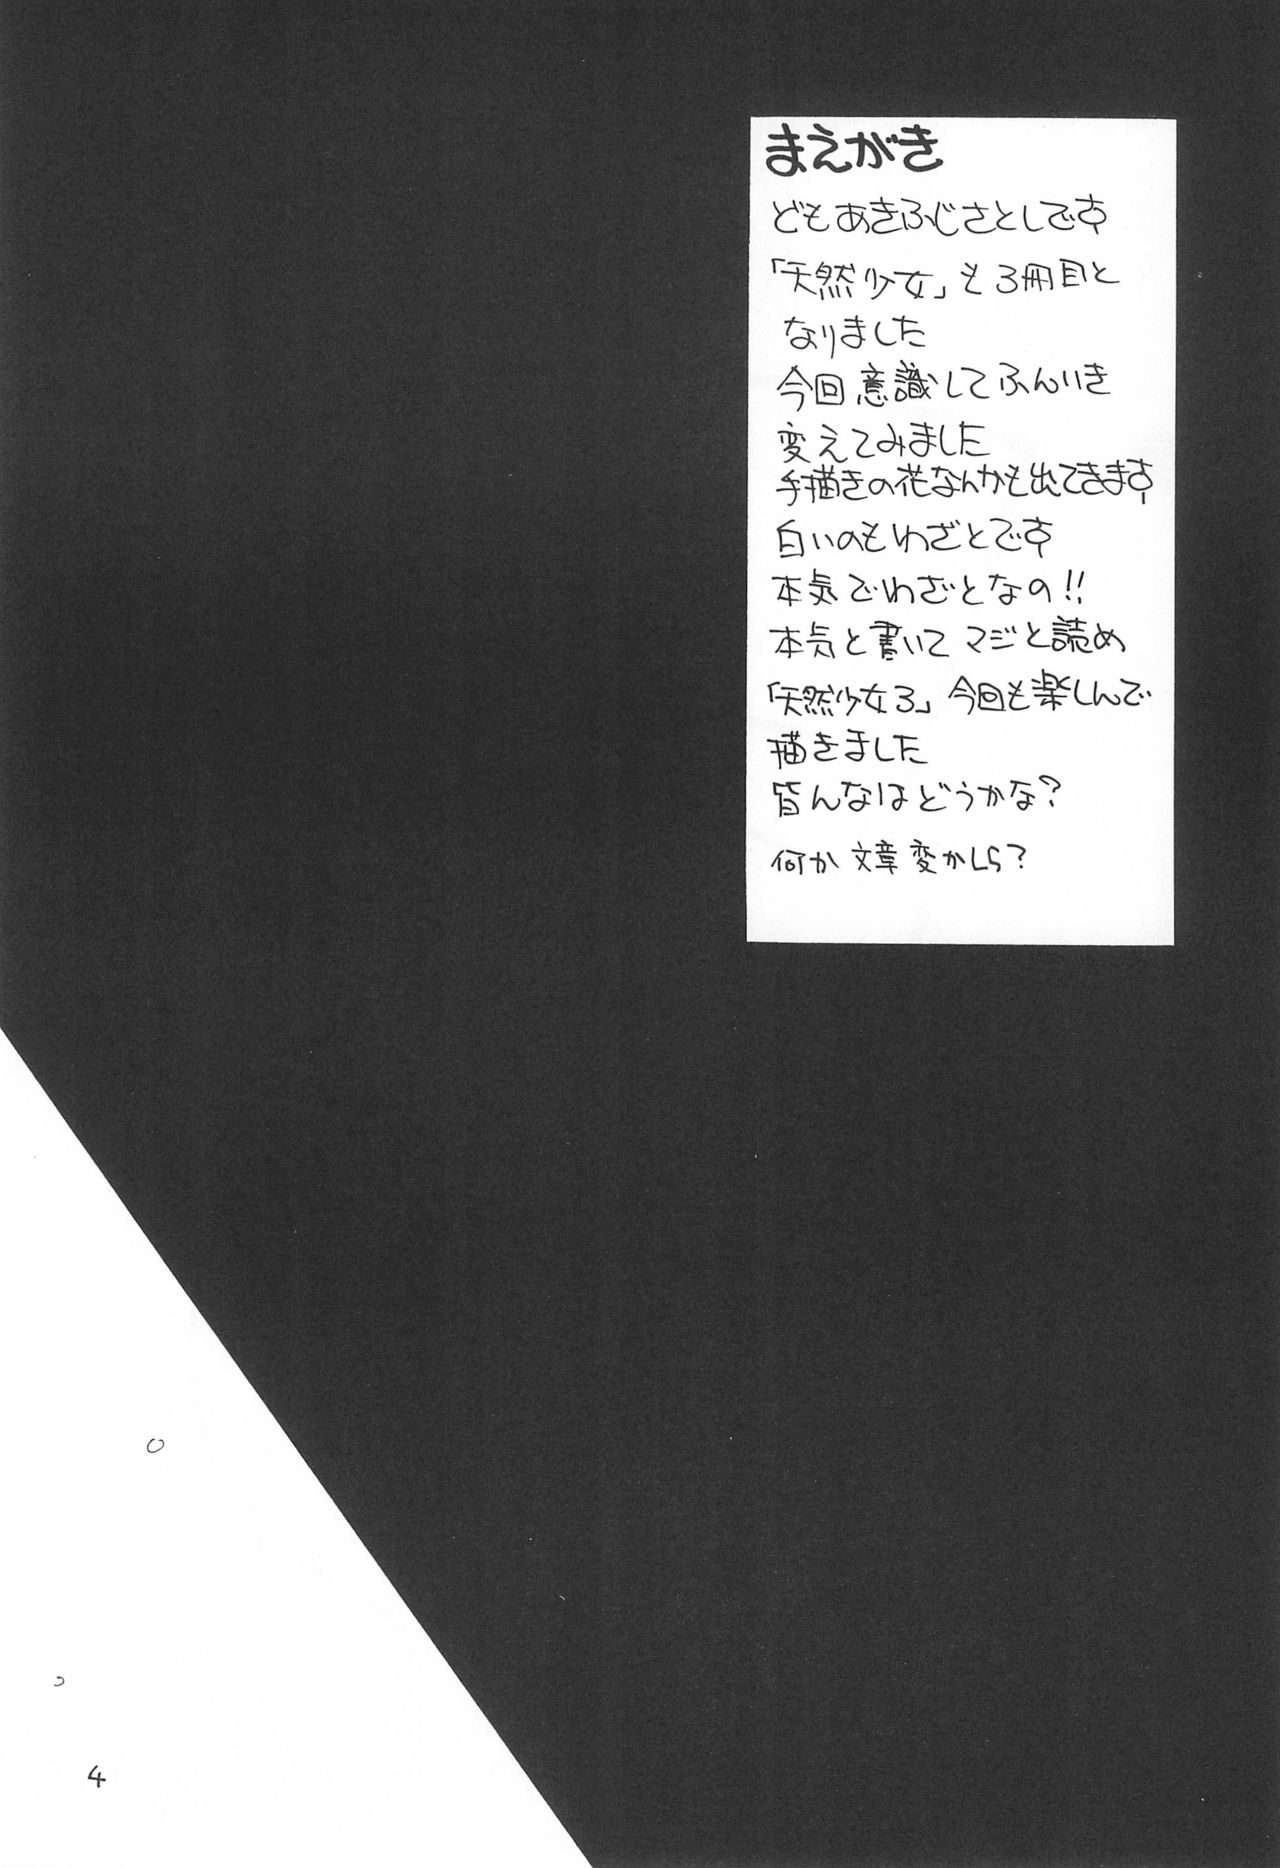 まえがき
どもあきふじさとしです
「天然少女」も3冊目と
なりました
今回意識してふんいき
変えてみました
手描きの花なんかも出てきます
白いのもわざとです
本気でわざとなの!!
本気と書いてマジと読め
「天然少女3」今回も楽しんで
描きました
皆んなはどうかな?
何か文章変かしら?
4